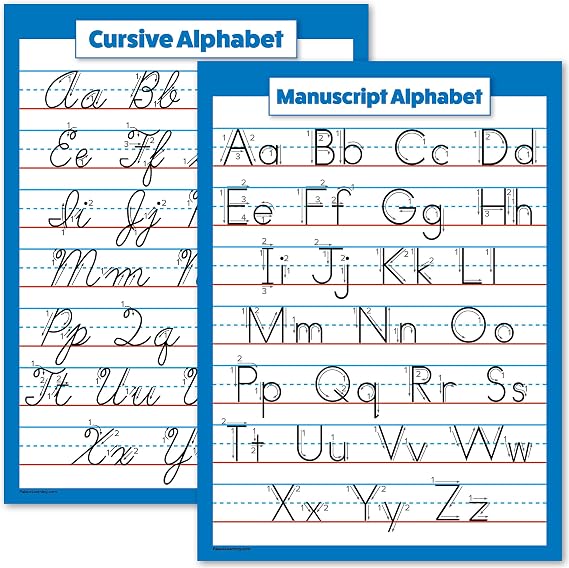 Cursive Alphabet
Aa Bb
Ee Ff
Ii Jj
Mm
Pp Qq
Tt Uu
Xx Yy
Manuscript Alphabet
Aa Bb Cc Dd
Ee Ff Gg Hh
Ii Jj Kk Ll
Mm Nn Oo
Pp Qq Rr Ss
Tt Uu Vv Ww
Xx Yy Zz